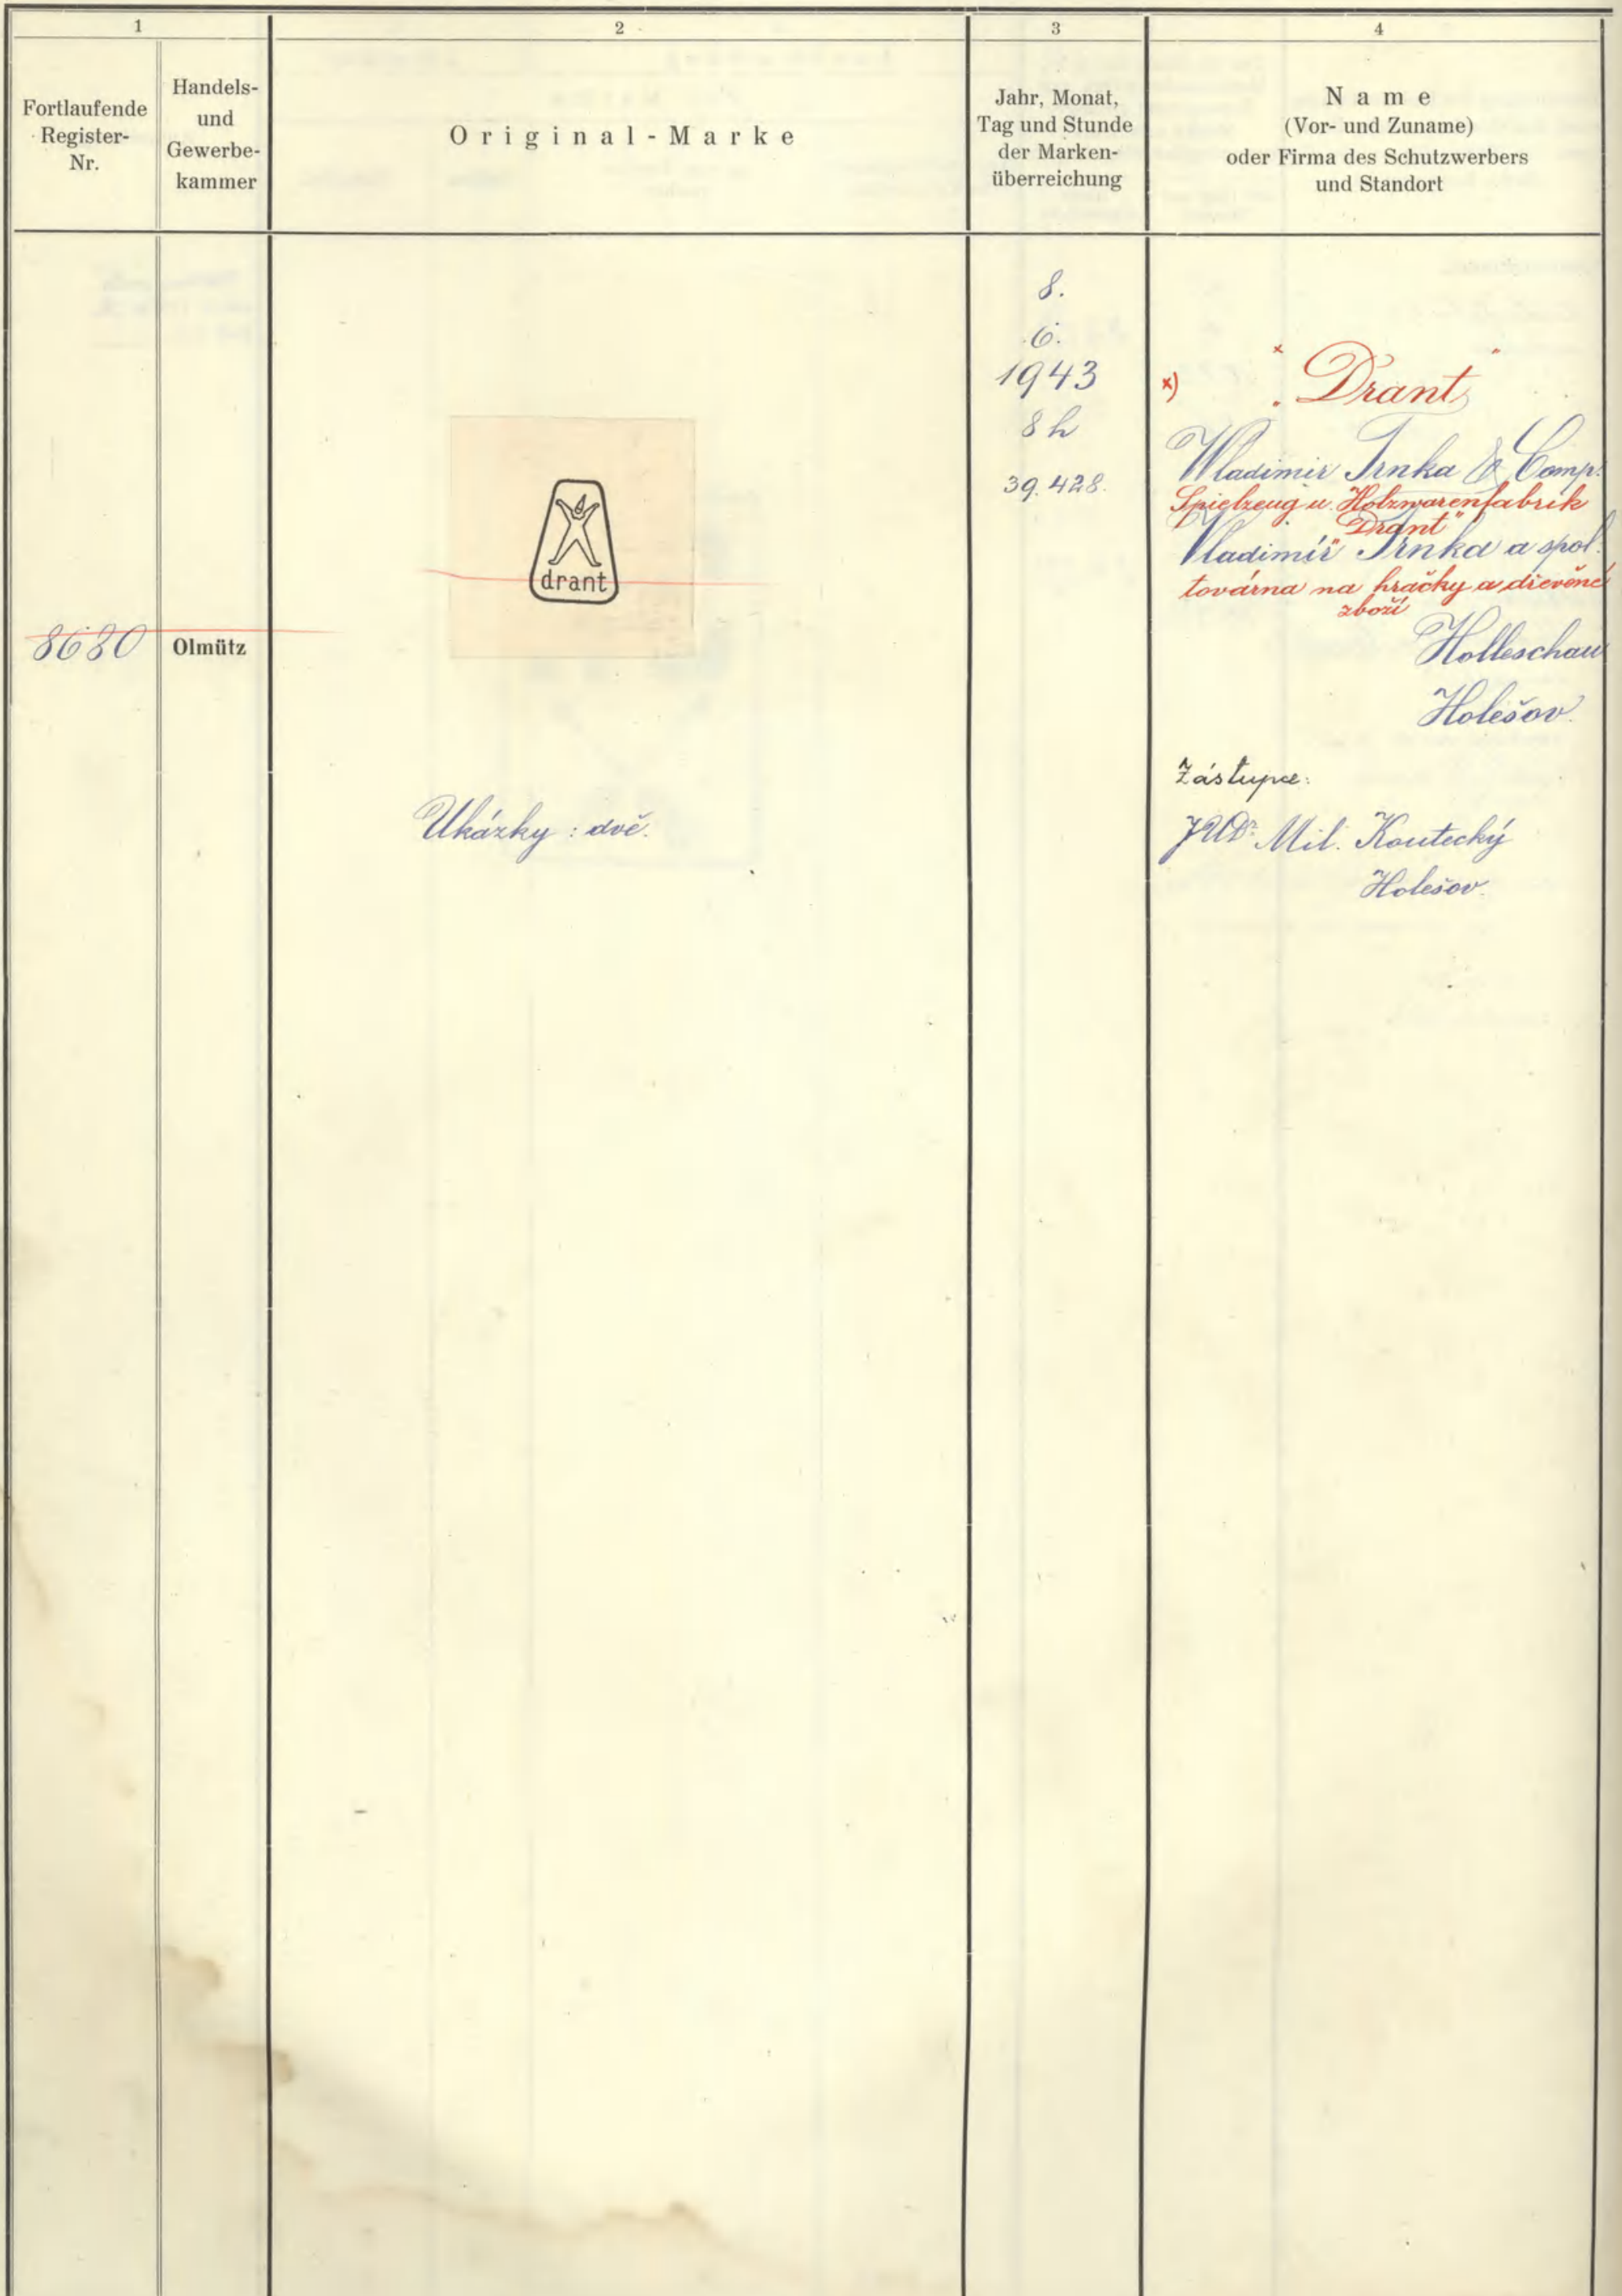 1
2
3
4
Fortlaufende
Register-
Nr.
Handels-
und
Gewerbe-
kammer
Original-Marke
Jahr, Monat,
Tag und Stunde
der Marken-
überreichung
Name
(Vor- und Zuname)
oder Firma des Schutzwerbers
und Standort
8680
Olmütz
drant
Ukázky : dvě.
8.
6.
1943
8 h
39.428.
x) "Drant"
Wladimir Trnka & Comp.
Spielzeug u. Holzwarenfabrik
"Drant"
Vladimír Trnka a spol.
továrna na hračky a dřevěné
zboží
Holleschau
Holešov.
Zástupce:
JUDr Mil. Koutecký
Holešov.